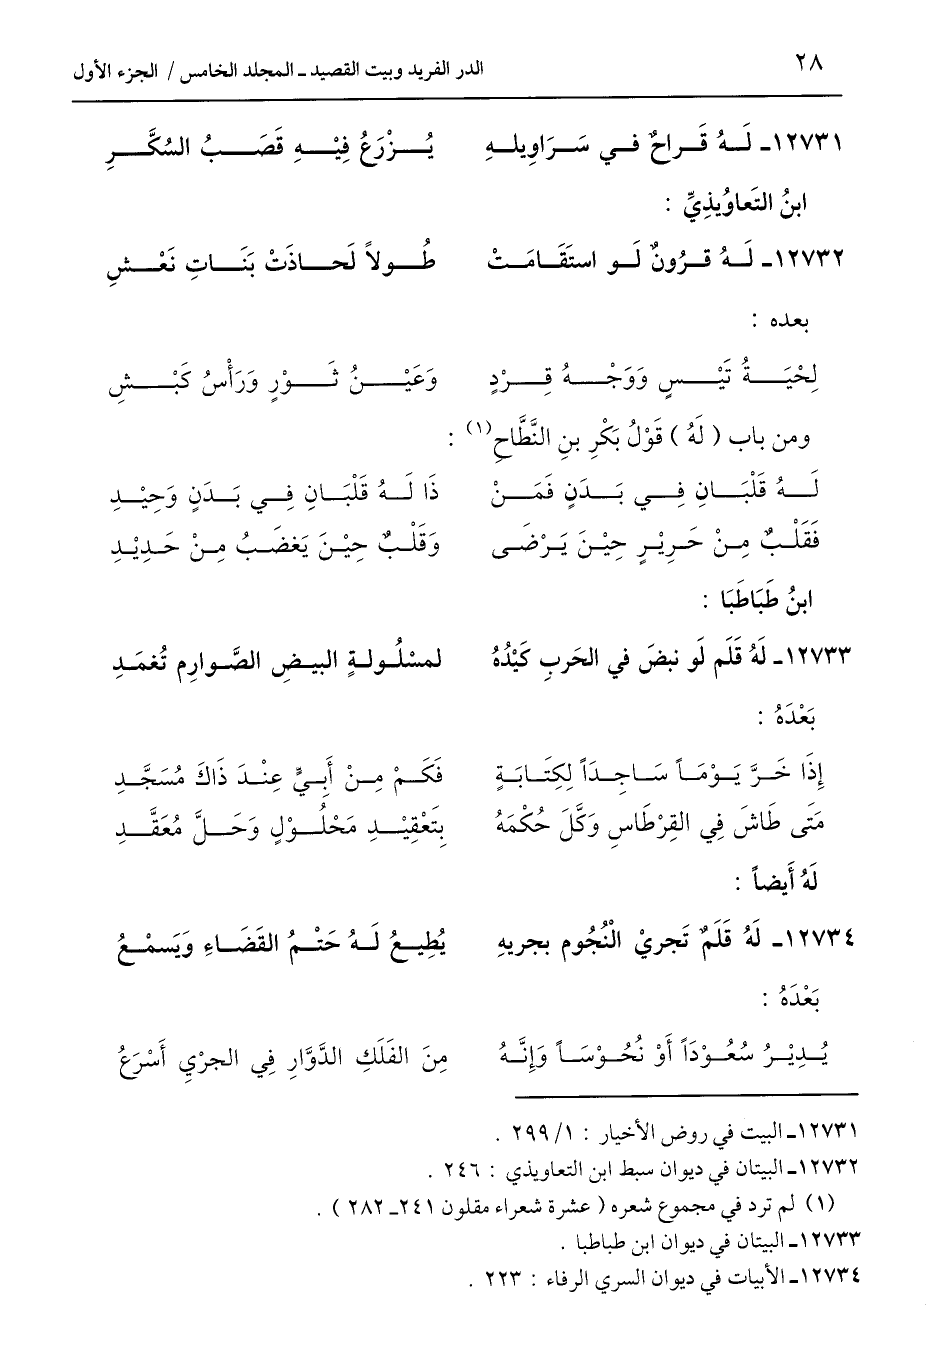 ٢٨ الدر الفريد وبيت القصيد ـ المجلد الخامس / الجزء الأول
١٢٧٣١ـ لَهُ قَراحٌ في سَرَاوِيلهِ يُزْرَعُ فِيْهِ قَصَبُ السُكَّرِ
ابنُ التَعاوُيذِيِّ :
١٢٧٣٢ـ لَهُ قرُونٌ لَو استَقَامَتْ طُولاً لَحاذَتْ بَنَاتِ نَعْشِ
بعده :
لِحْيَةُ تَيْسٍ وَوَجْهُ قِرْدٍ وَعَيْنُ ثَوْرٍ وَرَأْسُ كَبْشِ
ومن باب ( لَهُ ) قَوْلُ بَكْرِ بنِ النَّطَّاحِ(١) :
لَهُ قَلْبَانِ فِي بَدَنٍ فَمَنْ ذَا لَهُ قَلْبَانِ فِي بَدَنٍ وَحِيْدِ
فَقَلْبٌ مِنْ حَرِيْرٍ حِيْنَ يَرْضَى وَقَلْبٌ حِيْنَ يَغضَبُ مِنْ حَدِيْدِ
ابنُ طَبَاطَبَا :
١٢٧٣٣ـ لَهُ قَلَم لَو نبضَ في الحَربِ كَيْدُهُ لمسْلُولةٍ البيضِ الصَّوارِمِ تُغمَدِ
بَعْدَهُ :
إِذَا خَرَّ يَوْمَاً سَاجِدَاً لِكِتَابَةٍ فَكَمْ مِنْ أَبِيٍّ عِنْدَ ذَاكَ مُسَجَّدِ
مَتَى طَاشَ فِي القِرْطَاسِ وَكَّلَ حُكْمَهُ بِتَعْقِيْدِ مَحْلُوْلٍ وَحَلَّ مُعَقَّدِ
لَهُ أَيضاً :
١٢٧٣٤ـ لَهُ قَلَمٌ تَجريْ الْنُجُوم بجريهِ يُطِيعُ لَهُ حَتْمُ القَضَاءِ وَيَسمْعُ
بَعْدَهُ :
يُدِيْرُ سُعُوْدَاً أَوْ نُحُوْسَاً وَإِنَّهُ مِنَ الفَلَكِ الدَّوَّارِ فِي الجرْيِ أَسْرَعُ
١٢٧٣١ـ البيت في روض الأخيار : ١/ ٢٩٩ .
١٢٧٣٢ـ البيتان في ديوان سبط ابن التعاويذي : ٢٤٦ .
(١) لم ترد في مجموع شعره ( عشرة شعراء مقلون ٢٤١ـ ٢٨٢ ) .
١٢٧٣٣ـ البيتان في ديوان ابن طباطبا .
١٢٧٣٤ـ الأبيات في ديوان السري الرفاء : ٢٢٣ .